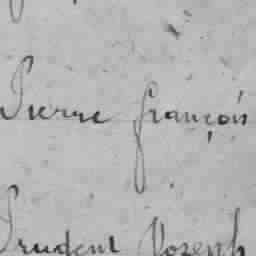 Pierre françois
Prudent Joseph